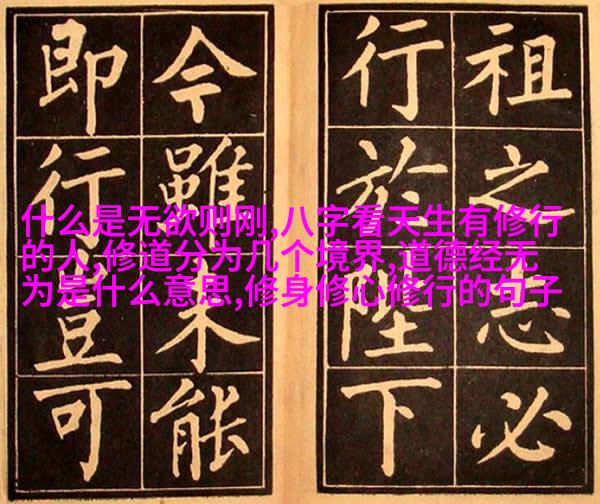 祖之必
行於陛下
今雖未能
即行豈可
什么是无欲则刚,八字看天生有修行
的人,修道分为几个境界,道德经无
为是什么意思,修身修心修行的句子